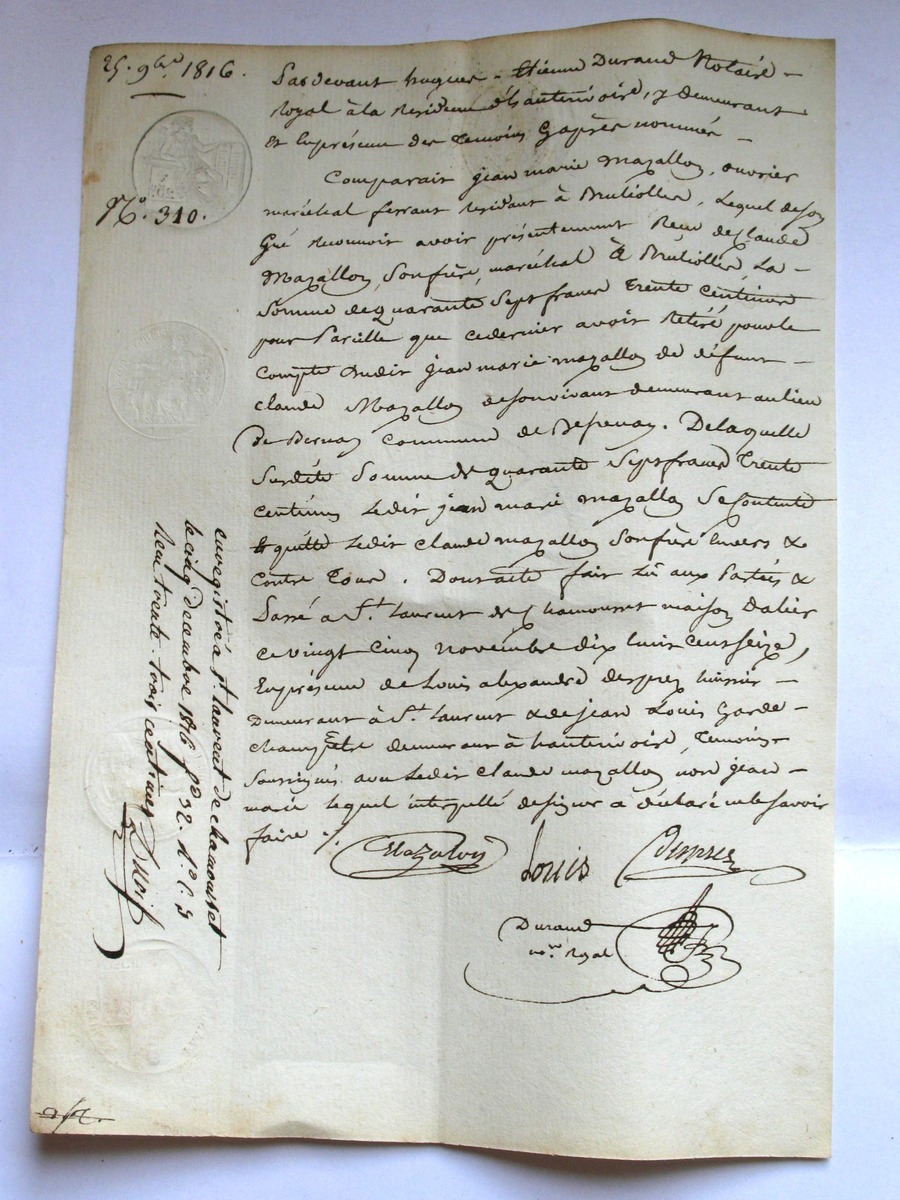 25. 9bre 1816.
N.o 310.
Pardevant hugues-Etienne Durand Notaire
Royal à la Residence d'hauterivoire, y demeurant
et En présence des témoins Cy après nommés
Comparait jean marie Mazallon, ouvrier
maréchal ferrant Residant à Brulioller, Lequel deson
Gré reconnoit avoir présentement Reçu de Claude
Mazallon, Son frère, maréchal à Brulioller, La
Somme de quarante Sept francs Trente Centimes
pour Pareille que cedernier avoir Retiré pour le
Compte dudit jean marie mazallon de défunt
claude Mazallon desonvivant demeurant au lieu
De Bernay Commune de Bessenay. De laquelle
Susdite Somme de quarante Sept francs Trente
centimes Ledit jean marie mazallon Se Contente
& quitte Ledit Claude mazallon Son frère Envers &
Contre Tous. Dont acte fait Lû aux Parties &
Passé à St. Laurent de Chamousset maison
ce vingt Cinq novembre dix huit Cent seize,
En présence de Louis alexandre desprez huissier
Demeurant à St. Laurent & de jean Louis Garde
champêtre demeurant à hauterivoire, Temoins
Soussignés avec Ledit Claude mazallon non jean
marie lequel interpellé de signer a déclaré ne le savoir
faire ./.
Mazalon
Louis
Desprez
Durand
nore. Royal
enregistré à St. Laurent de chamousset
le cinq decembre 1816 fo 32. Ro C. 3
Reçu trente-trois centimes